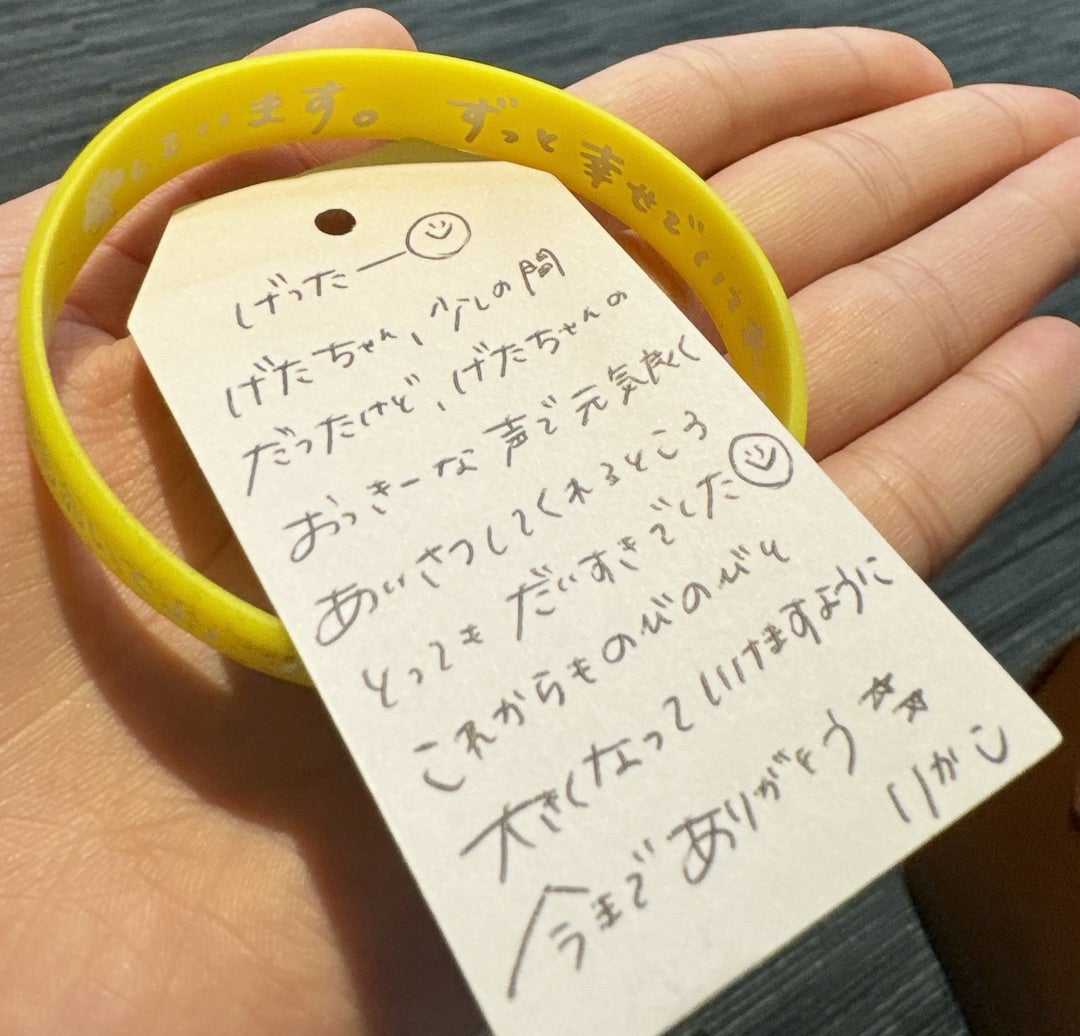 愛しています。 ずっと幸せでいます
げったー
げたちゃん、少しの間
だったけど、げたちゃんの
おっきーな声で元気良く
あいさつしてくれるところ
とっても だいすきでした
これからものびのびと
大きくなっていけますように
今まで ありがとう ☆☆
りかこ